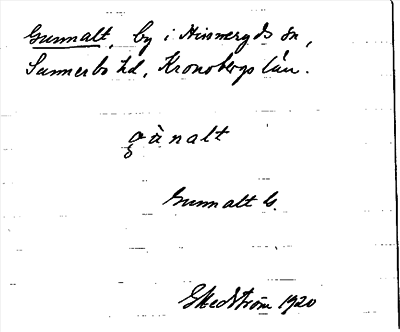 Gunnalt, by i Hinneryds sn,
Sunnerbo hd, Kronobergs län.
gùnalt
Gunnalt G.
G Hedström 1920